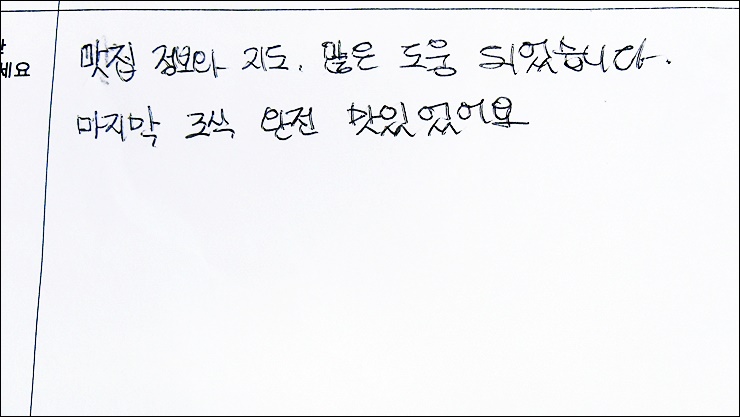 세요
맛집 정보와 지도. 많은 도움 되었습니다.
마지막 조식 완전 맛있었어요